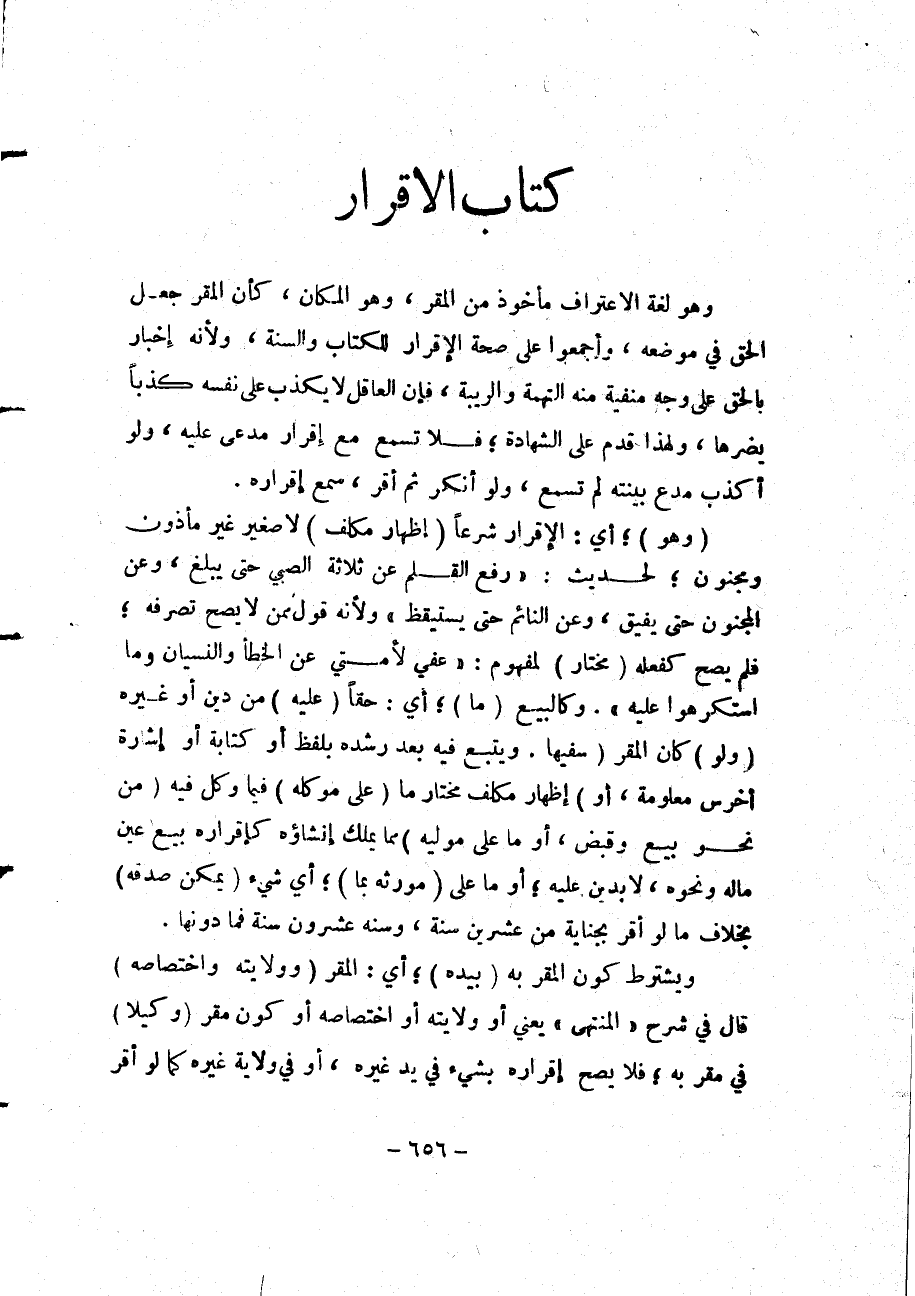 كتاب الاقرار
وهو لغة الاعتراف مأخوذ من المقر ، وهو المكان ، كأن المقر جعل
الحق في موضعه ، وأجمعوا على صحة الإقرار للكتاب والسنة ، ولأنه إخبار
بالحق على وجه منفية منه التهمة والريبة ، فإن العاقل لا يكذب على نفسه كذباً
يضرها ، ولهذا قدم على الشهادة ؛ فلا تسمع مع إقرار مدعى عليه ، ولو
أكذب مدع بينته لم تسمع ، ولو أنكر ثم أقر ، سمع إقراره .
( وهو ) ؛ أي : الإقرار شرعاً ( إظهار مكلف ) لا صغير غير مأذون
ومجنون ؛ لحديث : « رفع القلم عن ثلاثة الصبي حتى يبلغ ، وعن
المجنون حتى يفيق ، وعن النائم حتى يستيقظ » ولأنه قول ممن لا يصح تصرفه ؛
فلم يصح كفعله ( مختار ) لمفهوم : « عفي لأمتي عن الخطأ والنسيان وما
استكرهوا عليه » . وكالبيع ( ما ) ؛ أي : حقاً ( عليه ) من دين أو غيره
( ولو ) كان المقر ( سفيها . ويتبع فيه بعد رشده بلفظ أو كتابة أو إشارة
أخرس معلومة ، أو ) إظهار مكلف مختار ما ( على موكله ) فيما وكل فيه ( من
نحو بيع وقبض ، أو ما على موليه ) مما يملك إنشاؤه كإقراره ببيع عين
ماله ونحوه ، لا بدين عليه ؛ أو ما على ( مورثه بما ) ؛ أي شيء ( يمكن صدقه)
بخلاف ما لو أقر بجناية من عشرين سنة ، وسنه عشرون سنة فما دونها .
ويشترط كون المقر به ( بيده ) ؛ أي : المقر ( وولايته واختصاصه )
قال في شرح « المنتهى » يعني أو ولايته أو اختصاصه أو كون مقر (وكيلا)
في مقر به ؛ فلا يصح إقراره بشيء في يد غيره ، أو في ولاية غيره كما لو أقر
- ٦٥٦ -